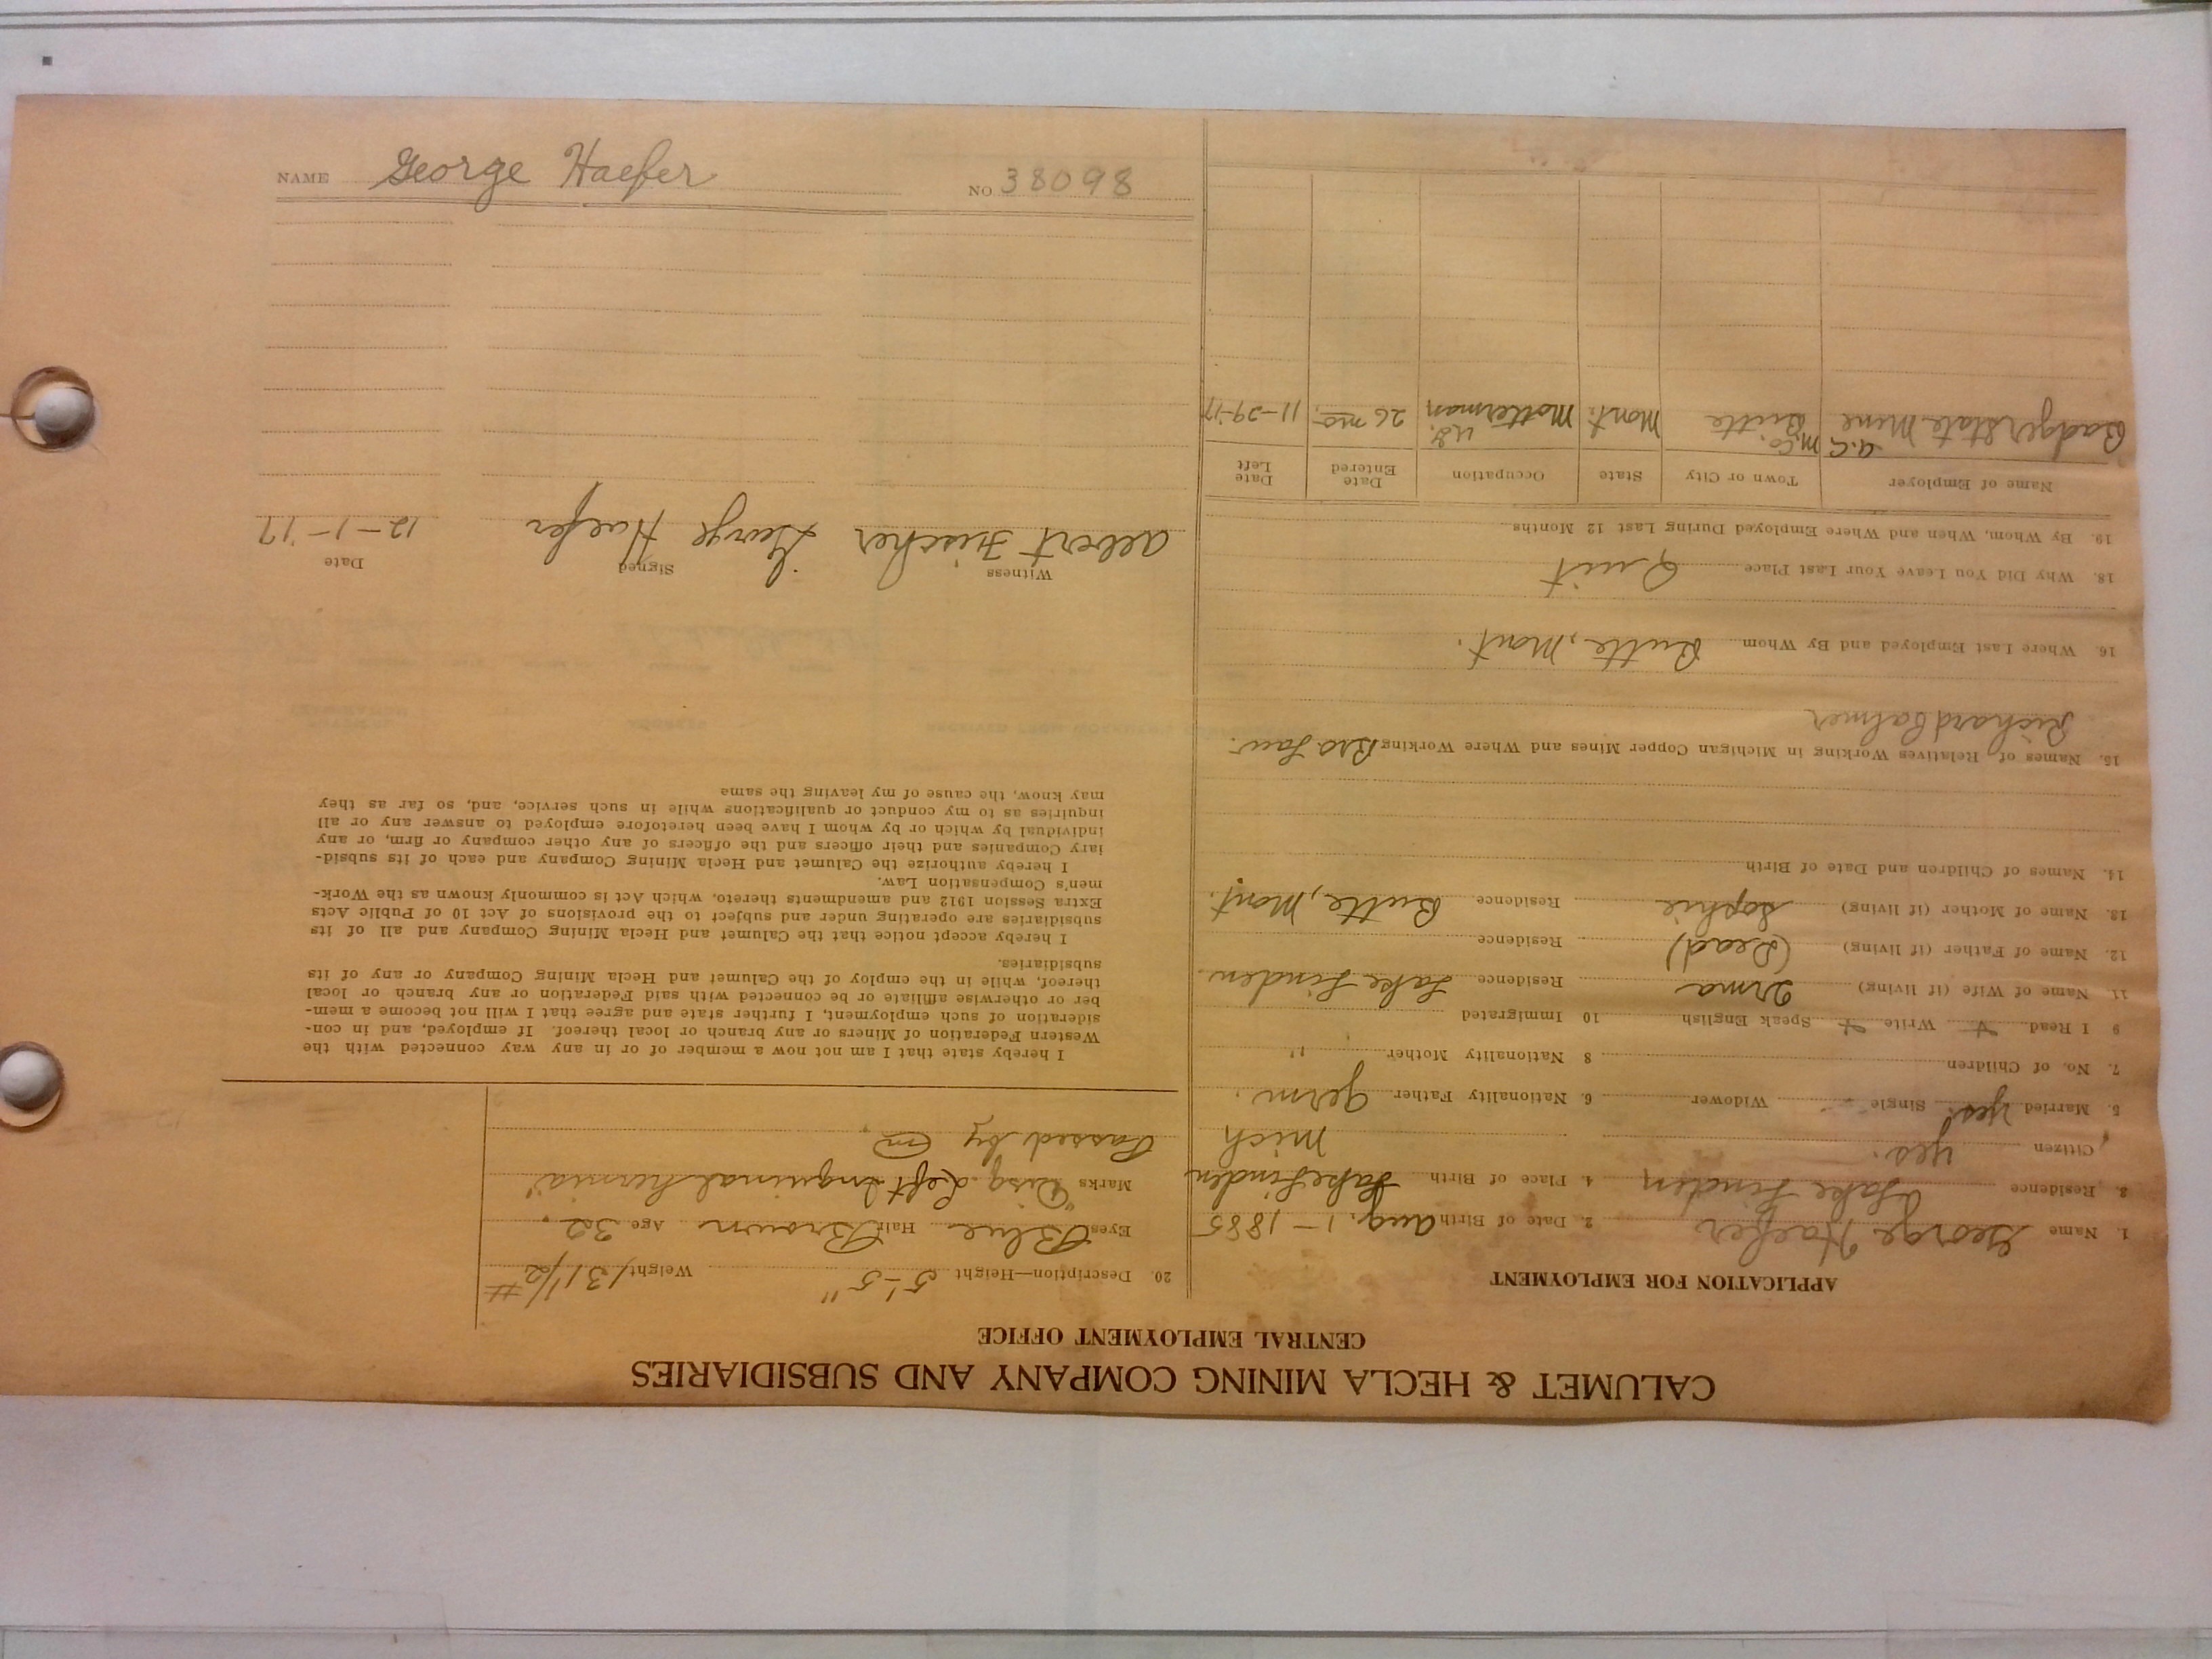 CALUMET & HECLA MINING COMPANY AND SUBSIDIARIES
CENTRAL EMPLOYMENT OFFICE
APPLICATION FOR EMPLOYMENT
1. Name George Haefer 2. Date of Birth Aug. 1-1885
3. Residence Lake Linden 4. Place of Birth Lake Linden
Citizen yes. Mich
5. Married yes. Single Widower 6. Nationality Father Germ.
7. No. of Children 8 Nationality Mother "
9 I Read Write Speak English 10 Immigrated
11. Name of Wife (if living) Irma Residence Lake Linden
12. Name of Father (if living) (Dead) Residence
13. Name of Mother (if living) Sophie Residence Butte, Mont.
14. Names of Children and Date of Birth
15. Names of Relatives Working in Michigan Copper Mines and Where Working Bro Law.
Richard Palmer
16. Where Last Employed and By Whom Butte, Mont.
18. Why Did You Leave Your Last Place Quit
19. By Whom, When and Where Employed During Last 12 Months
Name of Employer Town or City State Occupation Date Entered Date Left
A.C. M.Co. U.G.
Badger State Mine Butte Mont. Motterman 26 mo. 11-29-17
20 Description—Height 5'-5" Weight 131 1/2 #
Eyes Blue Hair Brown Age 32.
Marks "Disq. Left Inguinal hernia"
Passed by
I hereby state that I am not now a member of or in any way connected with the
Western Federation of Miners or any branch or local thereof. If employed, and in con-
sideration of such employment, I further state and agree that I will not become a mem-
ber or otherwise affiliate or be connected with said Federation or any branch or local
thereof, while in the employ of the Calumet and Hecla Mining Company or any of its
subsidiaries.
I hereby accept notice that the Calumet and Hecla Mining Company and all of its
subsidiaries are operating under and subject to the provisions of Act 10 of Public Acts
Extra Session 1912 and amendments thereto, which Act is commonly known as the Work-
men's Compensation Law.
I hereby authorize the Calumet and Hecla Mining Company and each of its subsid-
iary Companies and their officers and the officers of any other company or firm, or any
individual by which or by whom I have been heretofore employed to answer any or all
inquiries as to my conduct or qualifications while in such service, and, so far as they
may know, the cause of my leaving the same
Witness Signed Date
Albert Fischer George Haefer 12-1-'17
NAME George Haefer NO. 38098